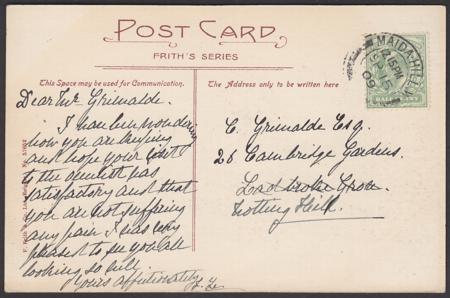 POST CARD
FRITH'S SERIES
This Space may be used for Communication.
The Address only to be written here
Dear Mr Grimalde.
I have been wondering
how you are keeping
and hope your visit
to the dentist was
satisfactory and that
you are not suffering
any pain I was very
pleased to see you all
looking so well
yours affectionately
C. Grimalde Esq.
26 Cambridge Gardens.
Ladbroke Grove.
Notting Hill.
MAIDA-HILL
2.15 PM
09
HALFPENNY